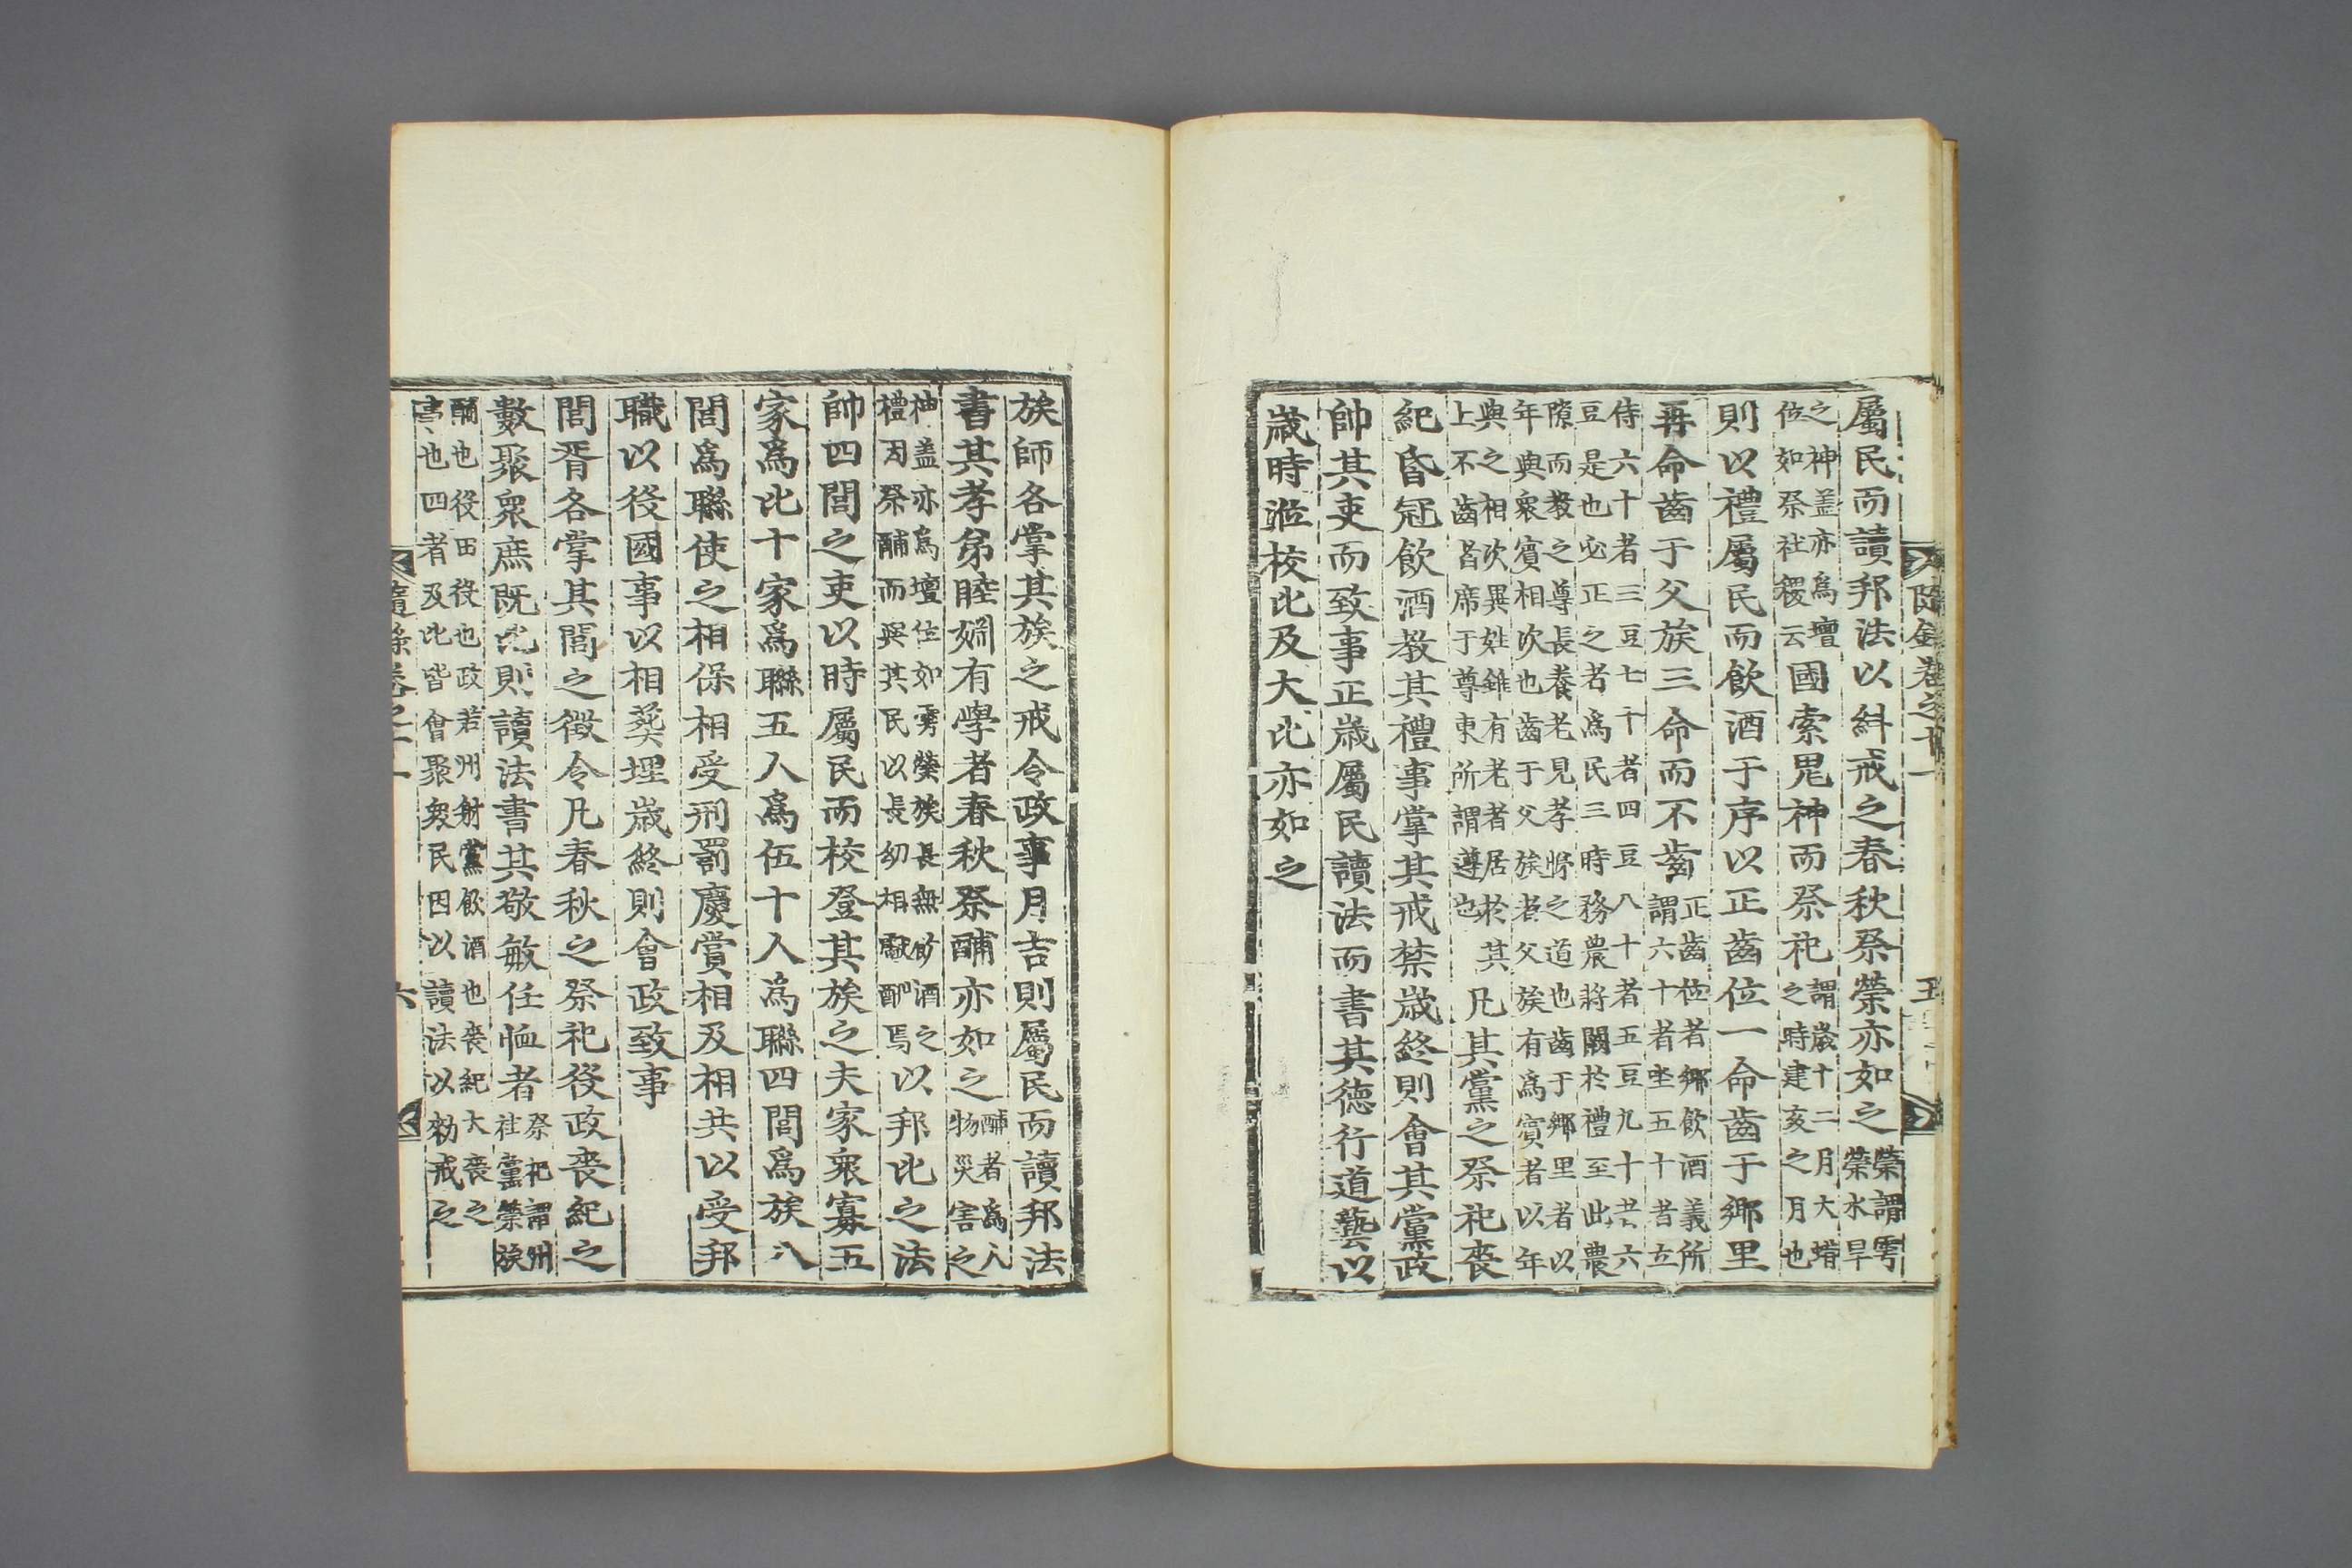 屬民而讀邦法以糾戒之春秋祭禜亦如之禜謂雩禜水旱
之神盖亦爲壇位如祭社稷云國索鬼神而祭祀謂歲十二月大蜡之時建亥之月也
則以禮屬民而飮酒于序以正齒位一命齒于鄕里
再命齒于父族三命而不齒正齒位者鄕飮酒義所謂六十者坐五十者立
侍六十者三豆七十者四豆八十者五豆九十者六豆是也必正之者爲民三時務農將闕於禮至此農
隙而敎之尊長養老見孝悌之道也齒于鄕里者以年與衆賓相次也齒于父族者父族有爲賓者以年
與之相次異姓雖有老者居於其上不齒者席于尊東所謂遵也凡其黨之祭祀喪
紀昏冠飮酒敎其禮事掌其戒禁歲終則會其黨政
帥其吏而致事正歲屬民讀法而書其德行道藝以
歲時涖校比及大比亦如之
隨錄卷之十一
五
族師各掌其族之戒令政事月吉則屬民而讀邦法
書其孝弟睦婣有學者春秋祭酺亦如之酺者爲人物災害之
神盖亦爲壇位如雩禜族長無飮酒之禮因祭酺而與其民以長幼相獻酬焉以邦比之法
帥四閭之吏以時屬民而校登其族之夫家衆寡五
家爲比十家爲聯五人爲伍十人爲聯四閭爲族八
閭爲聯使之相保相受刑罰慶賞相及相共以受邦
職以役國事以相葬埋歲終則會政致事
閭胥各掌其閭之徵令凡春秋之祭祀役政喪紀之
數聚衆庶旣比則讀法書其敬敏任恤者祭祀謂州社黨禜族
酺也役田役也政若州射黨飮酒也喪紀大喪之事也四者及比皆會聚衆民因以讀法以勑戒之
隨錄卷之十一
六